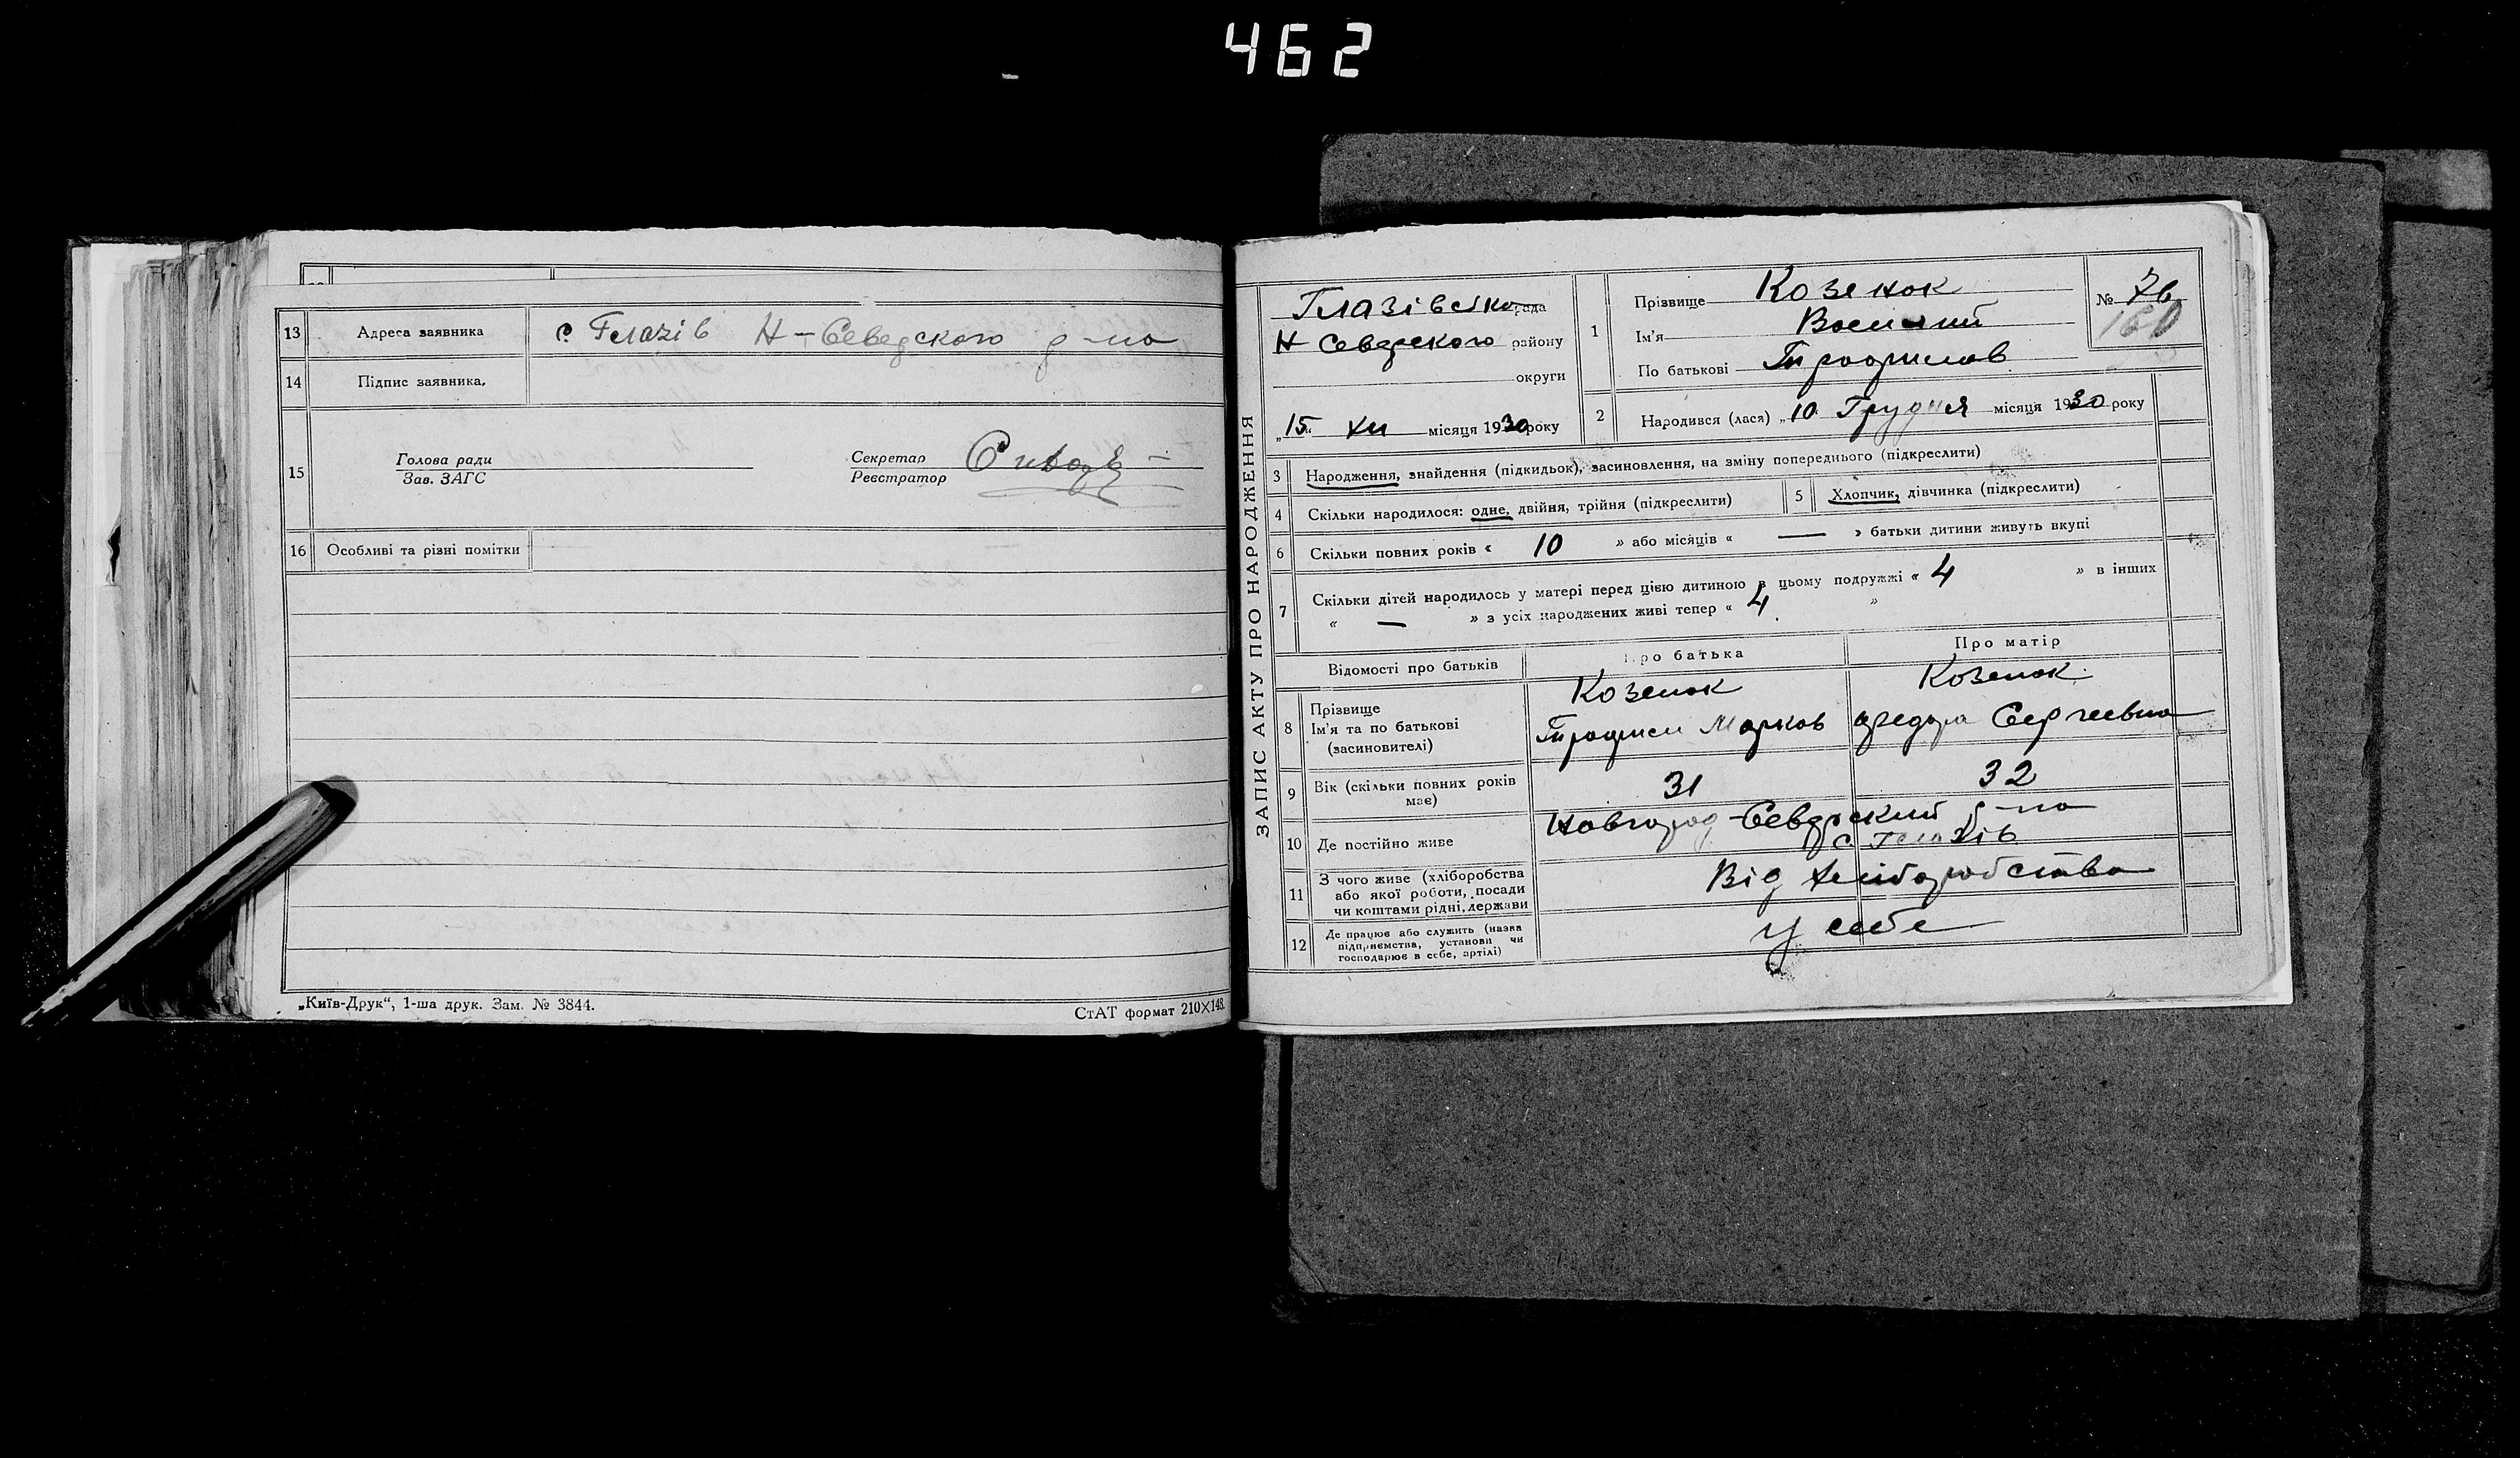 462
13 Адреса заявника с Глазів Н-Севедского р-на
14 Підпис заявника.
15 Голова ради
Зав. ЗАГС
Секретар
Реєстратор
16 Особливі та різні помітки
„Київ-Друк“, 1-ша друк. Зам. № 3844.
СтАТ формат 210×148.
ЗАПИС АКТУ ПРО НАРОДЖЕННЯ
Глазівська рада
Н Севдрского району
округи
„15“ XII місяця 1930 року
1 Прізвище Козенок
Ім'я Василий
По батькові Трофимов
№ 76
160
2 Народився (лася) „10 Грудня місяця 1930 року
3 Народження, знайдення (підкидьок), засиновлення, на зміну попереднього (підкреслити)
4 Скільки народилося: одне, двійня, трійня (підкреслити)
5 Хлопчик, дівчинка (підкреслити)
6 Скільки повних років « 10 » або місяців « — » батьки дитини живуть вкупі
7 Скільки дітей народилось у матері перед цією дитиною в цьому подружжі « 4 » в інших
« — » з усіх народжених живі тепер « 4 »
Відомості про батьків
Про батька
Про матір
8 Прізвище
Ім'я та по батькові
(засиновителі)
Козенок
Трофим Марков
Козенок
Федора Сергеевна
9 Вік (скільки повних років
має)
31
32
10 Де постійно живе
Новгород-Севдрский р-на
с Глазів
11 З чого живе (хліборобства
або якої роботи, посади
чи коштами рідні, держави
Від хліборобства
12 Де працює або служить (назва
підприємства, установи чи
господарює в себе, артілі)
у себе